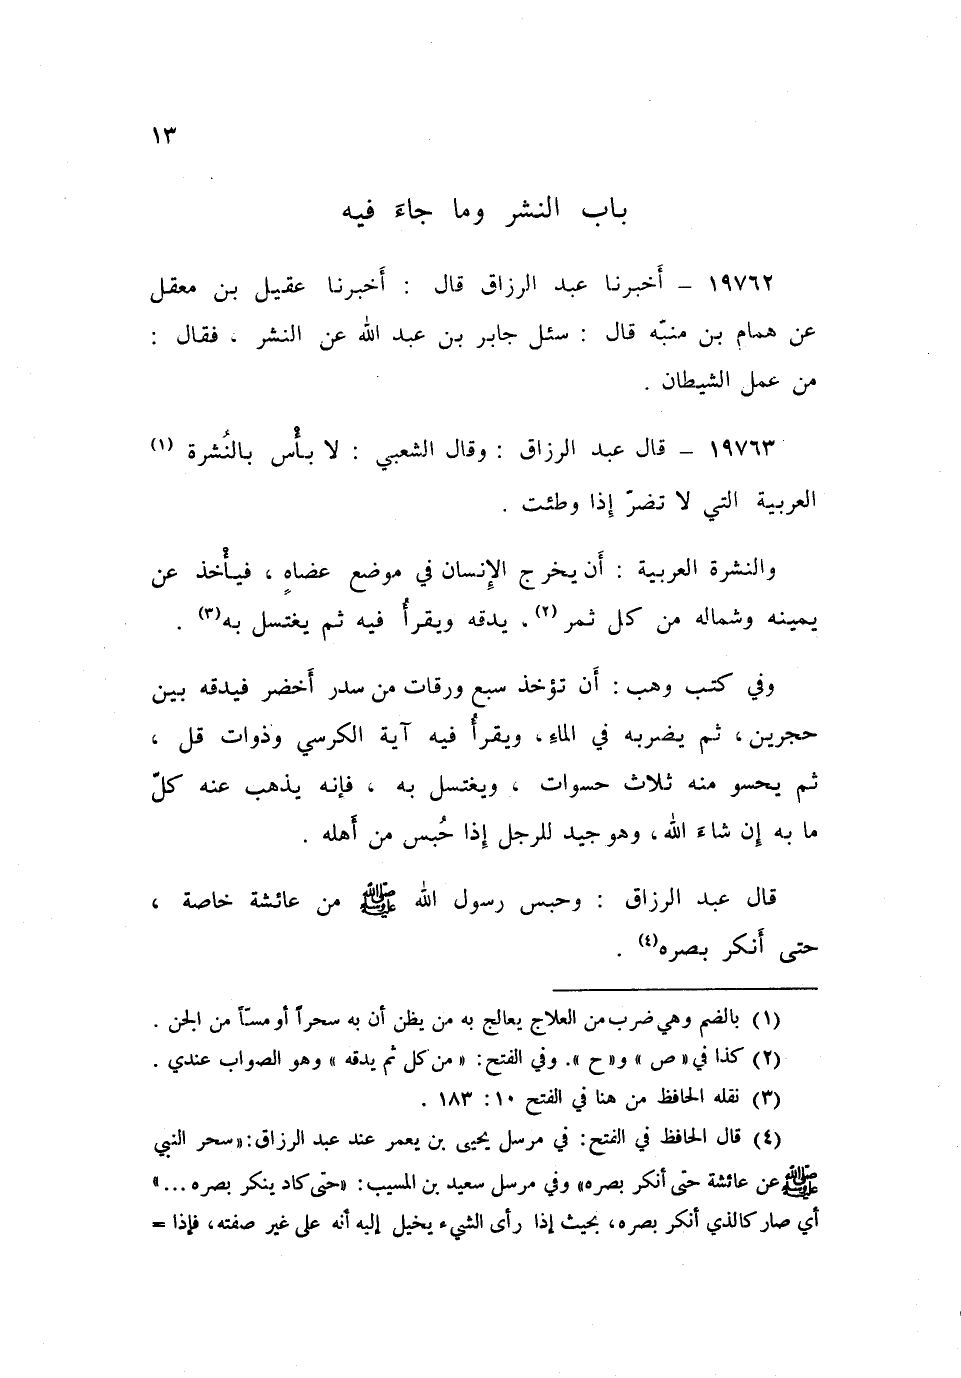 ١٣
باب النشر وما جاءَ فيه
١٩٧٦٢ – أَخبرنا عبد الرزاق قال : أَخبرنا عقيل بن معقل
عن همام بن منبّه قال : سئل جابر بن عبد الله عن النشر ، فقال :
من عمل الشيطان .
١٩٧٦٣ – قال عبد الرزاق : وقال الشعبي : لا بأْس بالنُشرة (١)
العربية التي لا تضرّ إذا وطئت .
والنشرة العربية : أَن يخرج الإنسان في موضع عضاهٍ ، فيأْخذ عن
يمينه وشماله من كل ثمر (٢) ، يدقه ويقرأُ فيه ثم يغتسل به(٣) .
وفي كتب وهب : أَن تؤخذ سبع ورقات من سدر أَخضر فيدقه بين
حجرين ، ثم يضربه في الماء ، ويقرأُ فيه آية الكرسي وذوات قل ،
ثم يحسو منه ثلاث حسوات ، ويغتسل به ، فإنه يذهب عنه كلّ
ما به إن شاءَ الله ، وهو جيد للرجل إذا حُبس من أَهله .
قال عبد الرزاق : وحبس رسول الله ﷺ من عائشة خاصة ،
حتى أَنكر بصره(٤) .
(١) بالضم وهي ضرب من العلاج يعالج به من يظن أن به سحراً أو مسّاً من الجن .
(٢) كذا في « ص » و« ح » . وفي الفتح : « من كل ثم يدقه » وهو الصواب عندي .
(٣) نقله الحافظ من هنا في الفتح ١٠ : ١٨٣ .
(٤) قال الحافظ في الفتح : في مرسل يحيى بن يعمر عند عبد الرزاق : «سحر النبي
ﷺ عن عائشة حتى أنكر بصره» وفي مرسل سعيد بن المسيب : «حتى كاد ينكر بصره ... »
أي صار كالذي أنكر بصره ، بحيث إذا رأى الشيء يخيل إليه أنه على غير صفته ، فإذا =